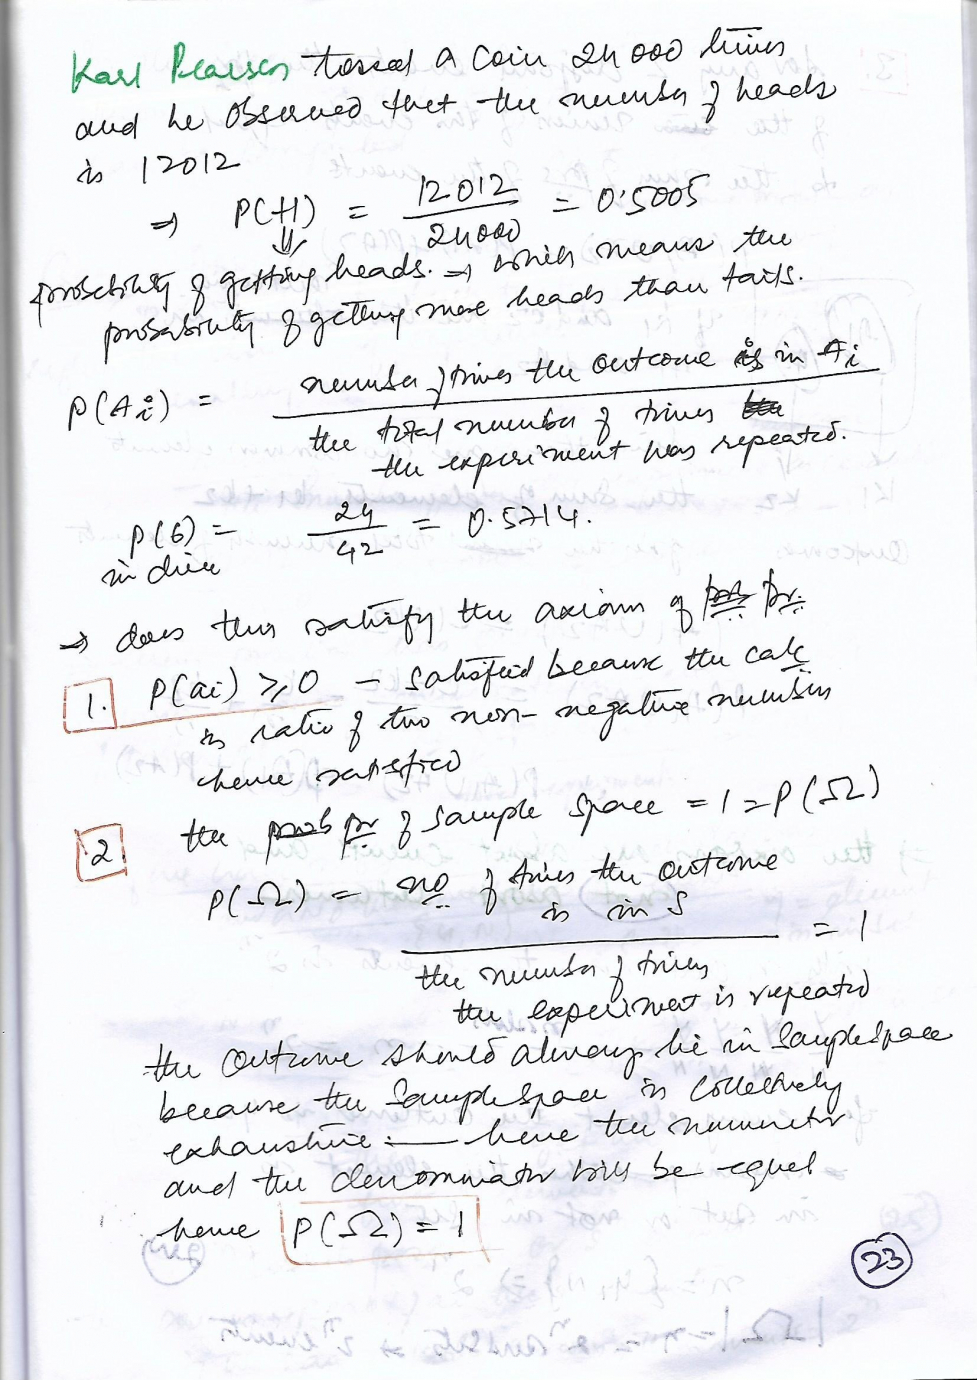 Karl Pearson tossed a coin 24000 times
and he observed that the number of heads
is 12012
⇒ P(H) = 12012 / 24000 = 0.5005
⇓
probability of getting heads. → which means the
probability of getting more heads than tails.
P(Ai) = number of times the outcome is in Ai
the total number of times
the experiment was repeated.
P(6) = 24 / 42 = 0.5714.
in dice
→ does this satisfy the axiom of pr.
1. P(ai) ≥ 0 – satisfied because the calc
is ratio of two non-negative numbers
hence satisfied
2. the pr of sample space = 1 = P(Ω)
P(Ω) = no of times the outcome
is in S
= 1
the number of times
the experiment is repeated
the outcome should always lie in Sample Space
because the Sample Space is collectively
exhaustive — hence the numerator
and the denominator will be equal
hence P(Ω) = 1
23